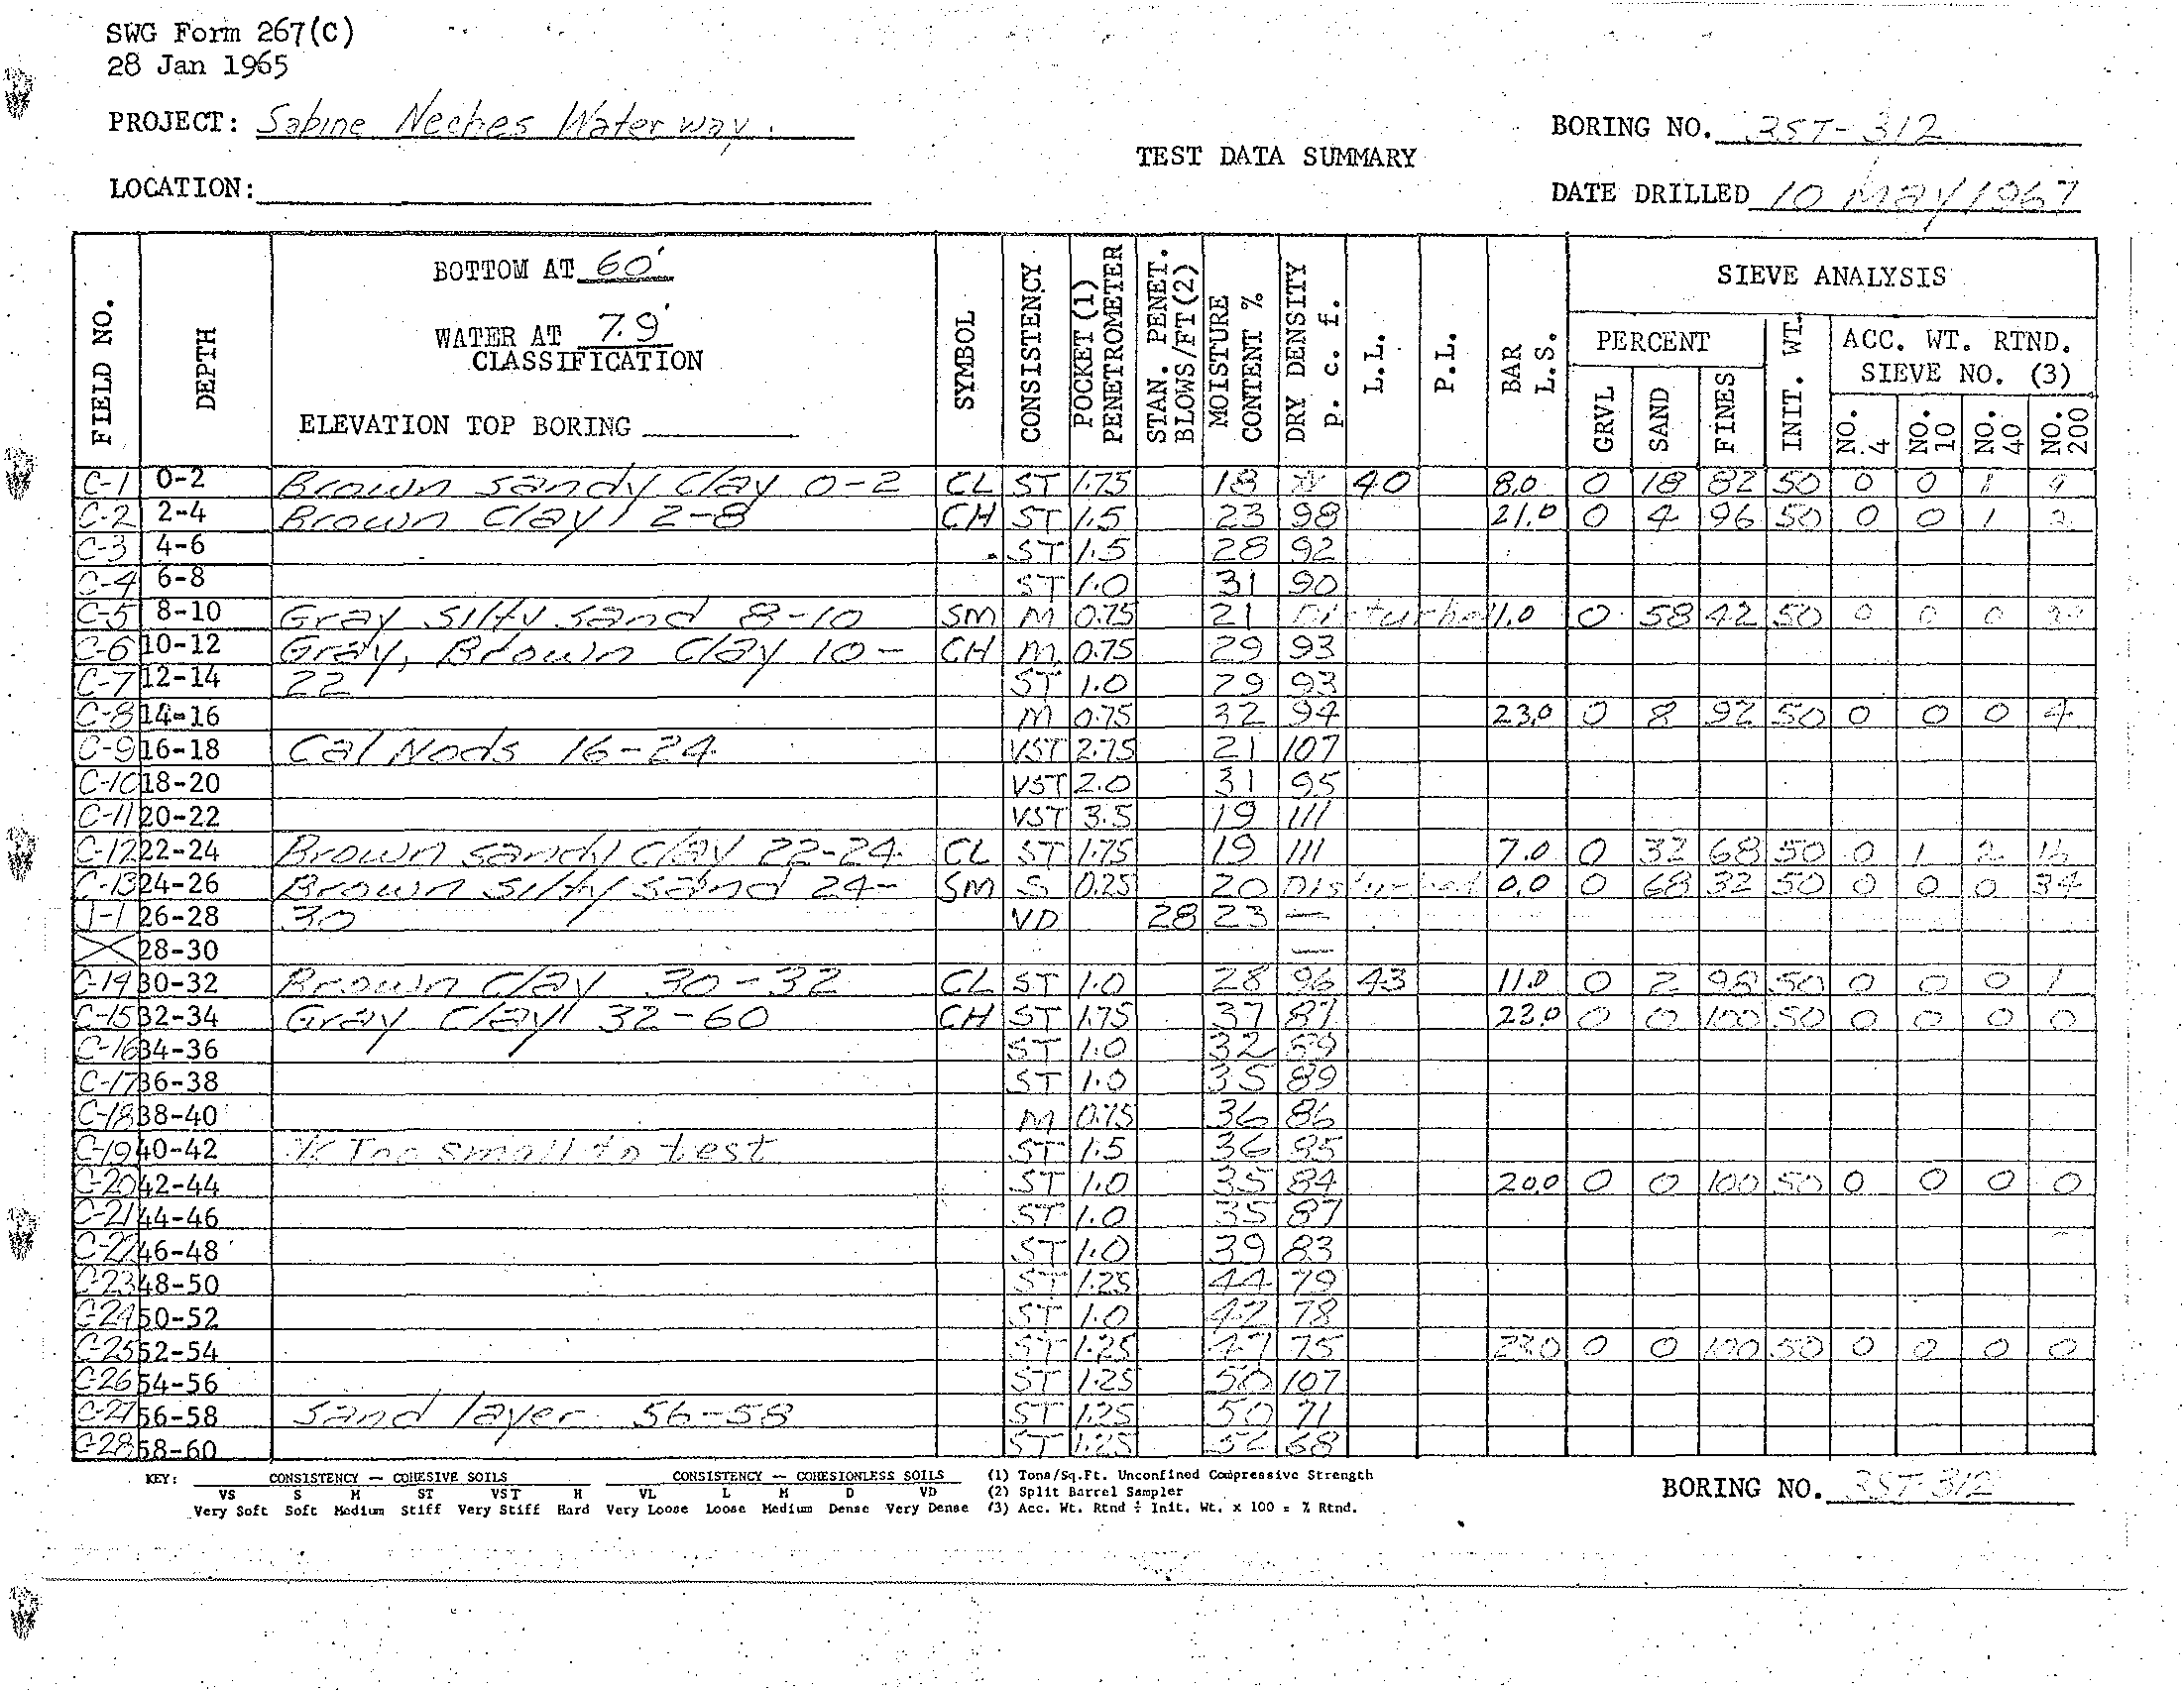 SWG Form 267(C)
28 Jan 1965
PROJECT: Sabine Neches Waterway.
BORING NO. 3ST-312
TEST DATA SUMMARY
LOCATION:
DATE DRILLED 10 May 1967
FIELD NO.
DEPTH
BOTTOM AT 60'
WATER AT 7.9'
CLASSIFICATION
ELEVATION TOP BORING
SYMBOL
CONSISTENCY
POCKET (1) PENETROMETER
STAN. PENET. BLOWS/FT (2)
MOISTURE CONTENT %
DRY DENSITY p. c. f.
L.L.
P.L.
BAR L.S.
SIEVE ANALYSIS
PERCENT
GRVL SAND FINES
INIT. WT.
ACC. WT. RTND. SIEVE NO. (3)
NO. 4 NO. 10 NO. 40 NO. 200
C-1 0-2 Brown sandy clay 0-2 CL ST 1.75 18 * 40 8.0 0 18 82 50 0 0 1 9
C-2 2-4 Brown clay 2-8 CH ST 1.5 23 98 21.0 0 4 96 50 0 0 1 2
C-3 4-6 ST 1.5 28 92
C-4 6-8 ST 1.0 31 90
C-5 8-10 Gray silty sand 8-10 SM M 0.75 21 Disturbed 1.0 0 58 42 50 0 0 0
C-6 10-12 Gray, Brown clay 10- CH M 0.75 29 93
C-7 12-14 22 ST 1.0 29 93
C-8 14-16 M 0.75 32 94 23.0 0 8 92 50 0 0 0 4
C-9 16-18 Cal Nods 16-24 VST 2.75 21 107
C-10 18-20 VST 2.0 31 95
C-11 20-22 VST 3.5 19 111
C-12 22-24 Brown sandy clay 22-24 CL ST 1.75 19 111 7.0 0 32 68 50 0 1 2 16
C-13 24-26 Brown silty sand 24- SM S 0.25 20 Disturbed 0.0 0 68 32 50 0 0 0 34
J-1 26-28 30 VD 28 23 —
28-30 —
C-14 30-32 Brown clay 30-32 CL ST 1.0 28 96 43 11.0 0 2 98 50 0 0 0 1
C-15 32-34 Gray clay 32-60 CH ST 1.75 37 87 23.0 0 0 100 50 0 0 0 0
C-16 34-36 ST 1.0 32 89
C-17 36-38 ST 1.0 35 89
C-18 38-40 M 0.75 36 86
C-19 40-42 * Too small to test ST 1.5 36 85
C-20 42-44 ST 1.0 35 84 20.0 0 0 100 50 0 0 0 0
C-21 44-46 ST 1.0 35 87
C-22 46-48 ST 1.0 39 83
C-23 48-50 ST 1.25 44 79
C-24 50-52 ST 1.0 42 78
C-25 52-54 ST 1.25 47 75 23.0 0 0 100 50 0 0 0 0
C-26 54-56 ST 1.25 50 107
C-27 56-58 Sand layer 56-58 ST 1.25 50 71
C-28 58-60 ST 1.25 52 68
KEY: CONSISTENCY — COHESIVE SOILS CONSISTENCY -- COHESIONLESS SOILS (1) Tons/Sq.Ft. Unconfined Compressive Strength
VS S M ST VST H VL L M D VD (2) Split Barrel Sampler
Very Soft Soft Medium Stiff Very Stiff Hard Very Loose Loose Medium Dense Very Dense (3) Acc. Wt. Rtnd ÷ Init. Wt. x 100 = % Rtnd.
BORING NO. 3ST-312